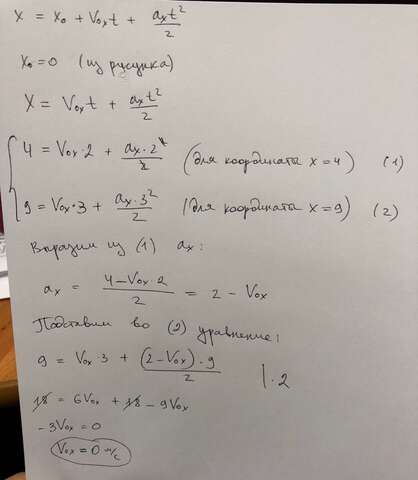 x = x₀ + V₀ₓt + aₓt²/2
x₀ = 0 (из рисунка)
x = V₀ₓt + aₓt²/2
4 = V₀ₓ·2 + aₓ·2²/2 (для координаты x = 4) (1)
9 = V₀ₓ·3 + aₓ·3²/2 (для координаты x = 9) (2)
Выразим из (1) aₓ:
aₓ = 4 − V₀ₓ·2/2 = 2 − V₀ₓ
Подставим во (2) уравнение:
9 = V₀ₓ·3 + (2 − V₀ₓ)·9/2 |·2
18 = 6V₀ₓ + 18 − 9V₀ₓ
−3V₀ₓ = 0
V₀ₓ = 0 м/с